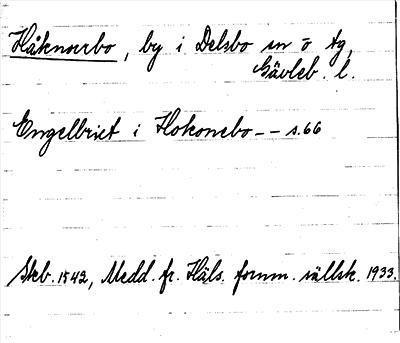 Håknorbo, by i Delsbo sn ö tg,
Gävleb. l.
Engelbrict i Hokonebo -- s. 66
Skb. 1542, Medd. fr. Häls. fornm. sällsk. 1933.